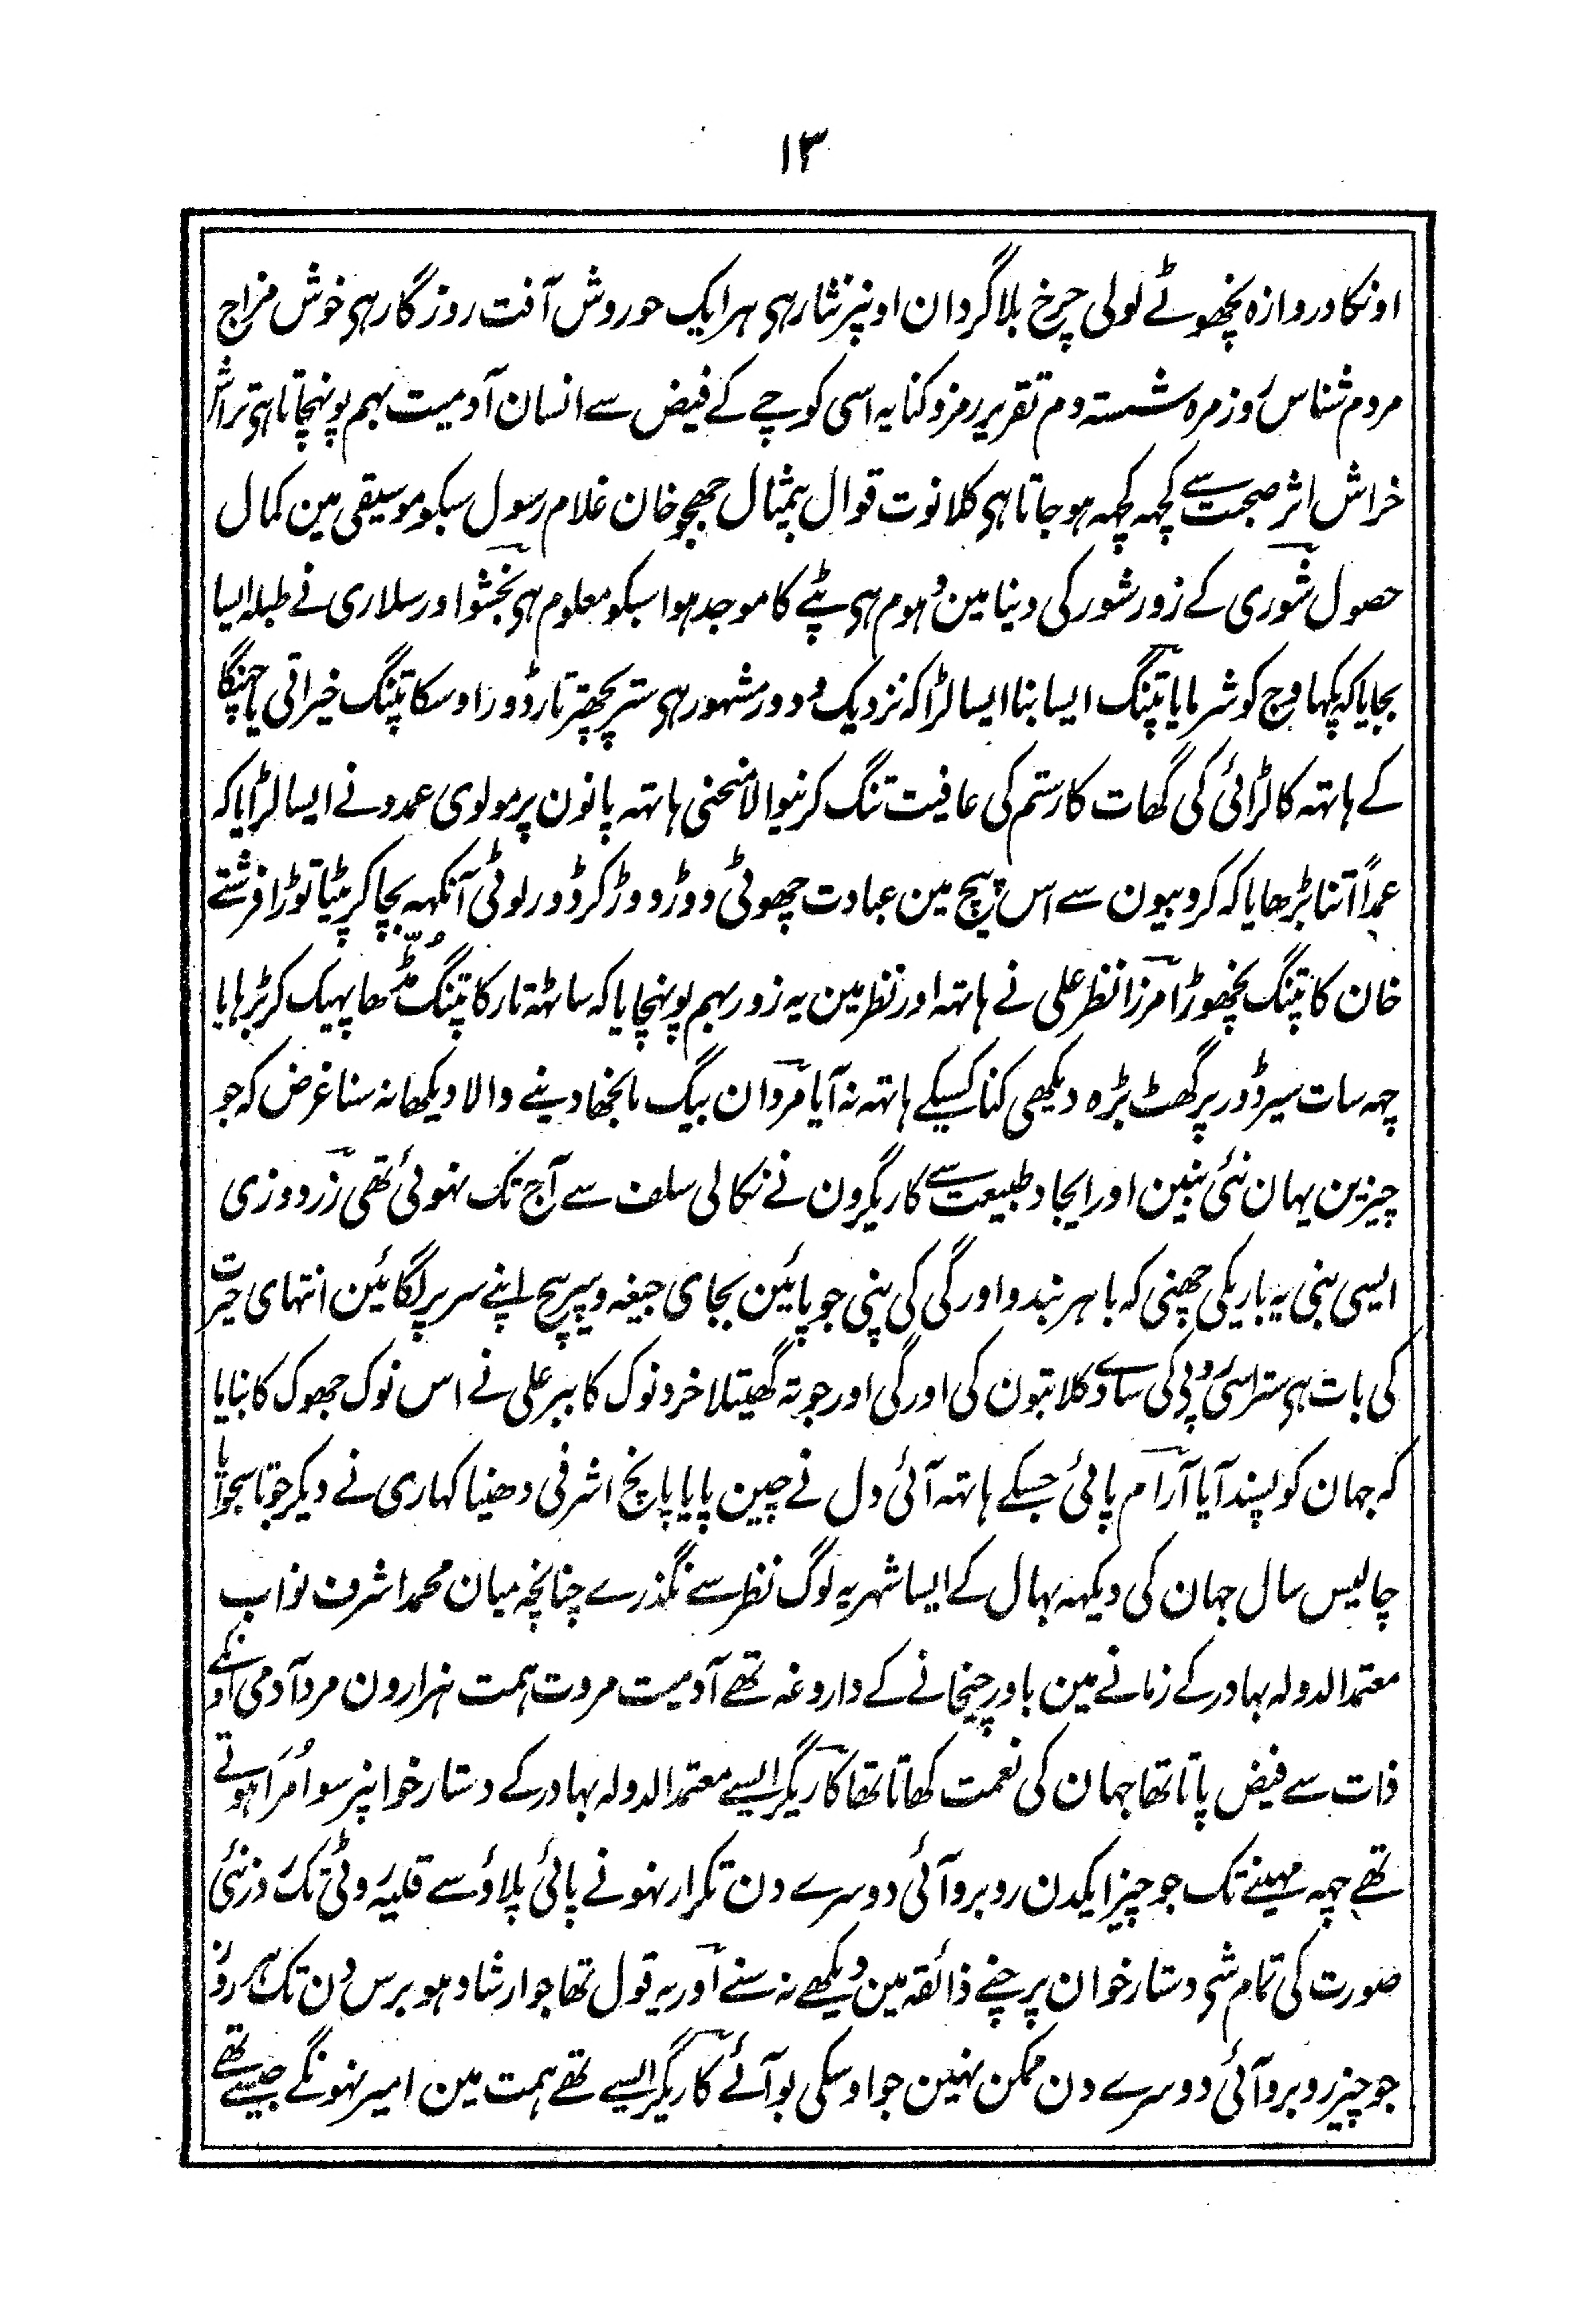 ۱۳
اونکا دروازہ نچھوٹے لولی چرخ بلاگردان اونپر نثار ہی ہر ایک حور وش آفت روزگار ہی خوش مزاج
مردم شناس روزمرہ شستہ دم تقریر رمز و کنایہ اسی کوچے کے فیض سے انسان آدمیت بہم پونہچاتا ہی تراش
خراش اثر صحبت سے کچہہ کچہہ ہو جاتا ہی کلانوت قوال بیمثال چھجو خان غلام رسول سبکو موسیقی مین کمال
حصول شوری کے زور شور کی دنیا مین دہوم ہی ٹپے کا موجد ہوا سبکو معلوم ہی بخشو اور سلاری نے طبلہ ایسا
بجایا کہ پکہاوج کو شرمایا پتنگ ایسا بنا ایسا لڑا کہ نزدیک و دور مشہور ہی ستر پچھتر تار ڈور اوسکا پتنگ خیراتی یا چہنگا
کے ہاتہہ کا لڑائی کی گھات کا رستم کی عافیت تنگ کرنیوالا منحنی ہاتہہ پانون پر مولوی عمدو نے ایسا لڑایا کہ
عمداً اتنا بڑھایا کہ کروبیون سے اس پیچ مین عبادت چھوٹی دوڑ دوڑ کر ڈور لوٹی آنکہہ بچا کر پیٹا توڑا فرشتے
خان کا پتنگ نچھوڑا مرزا نظر علی نے ہاتہہ اور نظر مین یہ زور بہم پونہچایا کہ ساٹہہ تار کا پتنگ مٹھا پہیک کر بڑہایا
چہہ سات سیر ڈور پر گھٹ بڑہ دیکھی کنا کسیکے ہاتہہ نہ آیا مردان بیگ مانجھا دینے والا دیکھا نہ سنا غرض کہ جو
چیزین یہان نئی بنین اور ایجاد طبیعت سے کاریگرون نے نکالی سلف سے آج تک نہوئی تھی زردوزی
ایسی بنی یہ باریکی چھنی کہ باہر بندو اورگی کی پنی جو پائین بجای جیغہ و سرپیچ اپنے سر پر لگائین انتہای حیرت
کی بات ہی ستراسی روپی کی سادے کلابتون کی اورگی اور جوتہ گھیتلا خرد نوک کا ببر علی نے اس نوک جھوک کا بنایا
کہ جہان کو پسند آیا آرام پائی جسکے ہاتہہ آئی دل نے چین پایا پانچ اشرفی دھنیا کہاری نے دیکر جوتا سجوایا
چالیس سال جہان کی دیکہہ بہال کے ایسا شہر یہ لوگ نظر سے نگذرے چنانچہ میان محمد اشرف نواب
معتمد الدولہ بہادر کے زمانے مین باورچیخانے کے داروغہ تھے آدمیت مروت ہمت ہزارون مرد آدمی اونکے
ذات سے فیض پاتا تھا جہان کی نعمت کھاتا تھا کاریگر ایسے معتمد الدولہ بہادر کے دستار خوانپر سو امرا ہوتے
تھے چہہ مہینے تک جو چیز ایکدن روبرو آئی دوسرے دن تکرار نہونے پائی پلاؤ سے قلیہ روٹی تک روز نئی
صورت کی تمام شی دستار خوان پر چنے ذائقہ مین دیکھے نہ سنے اور یہ قول تھا جو ارشاد ہو برس دن تک ہر روز
جو چیز روبرو آئی دوسرے دن ممکن نہین جو اوسکی بو آئے کاریگر ایسے تھے ہمت مین امیر نہونگے جیسے تھے